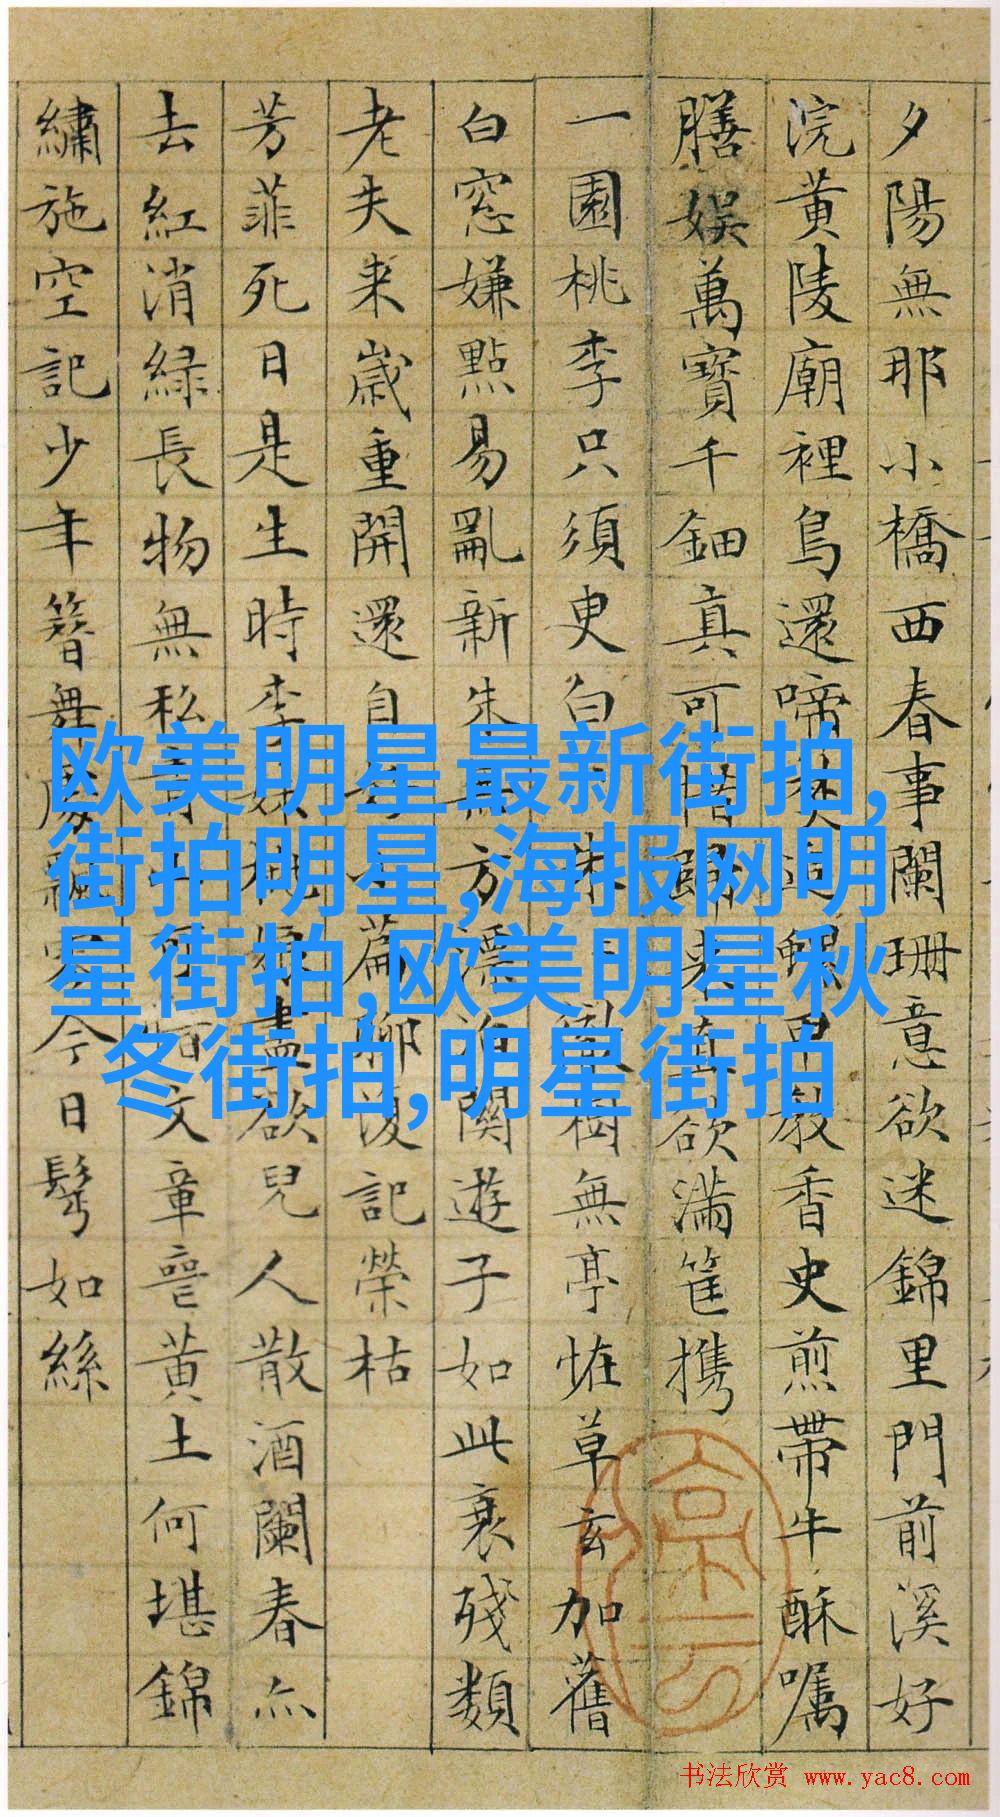 夕陽無那小橋西春事闌珊意欲迷錦里門前溪好
浣黄陵廟裡鳥還啼焚追螺甲教香史煎帶牛酥囑
膳娱萬寶千鈿真可惜歸来直欲滿筐携
一園桃李只須臾白朱樹無亭怪草玄加舊
白窓嫌點易亂新朱無方漂泊關遊子如此衰殘類
老夫来歲重開還自篇聊復記榮枯
芳菲死日是生時李妹桃娘盡欲兒人散酒闌春亦
去紅消緑長物無私青山可惜文章喪黄土何堪錦
繡施空記少年簪舞處飄零今日髩如絲
欧美明星最新街拍,
街拍明星,海报网明
星街拍,欧美明星秋
冬街拍,明星街拍
书法欣赏 www.yac8.com